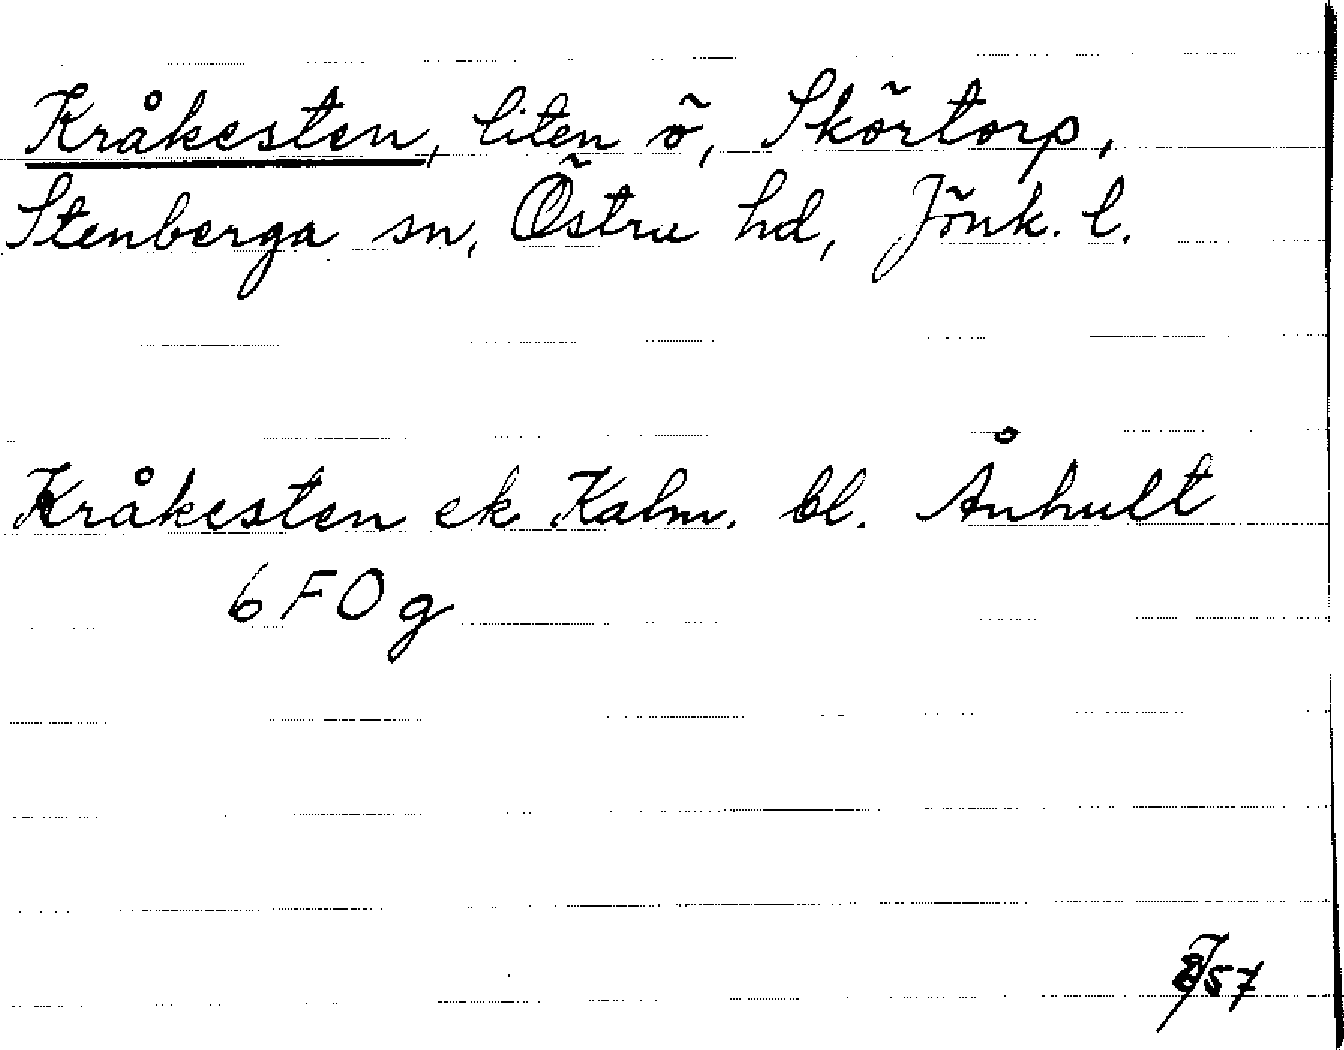 Kråkesten, liten ö, Skörtorp,
Stenberga sn, Östra hd, Jönk. l.
Kråkesten ek. Kalm. bl. Ånhult
6 F O g